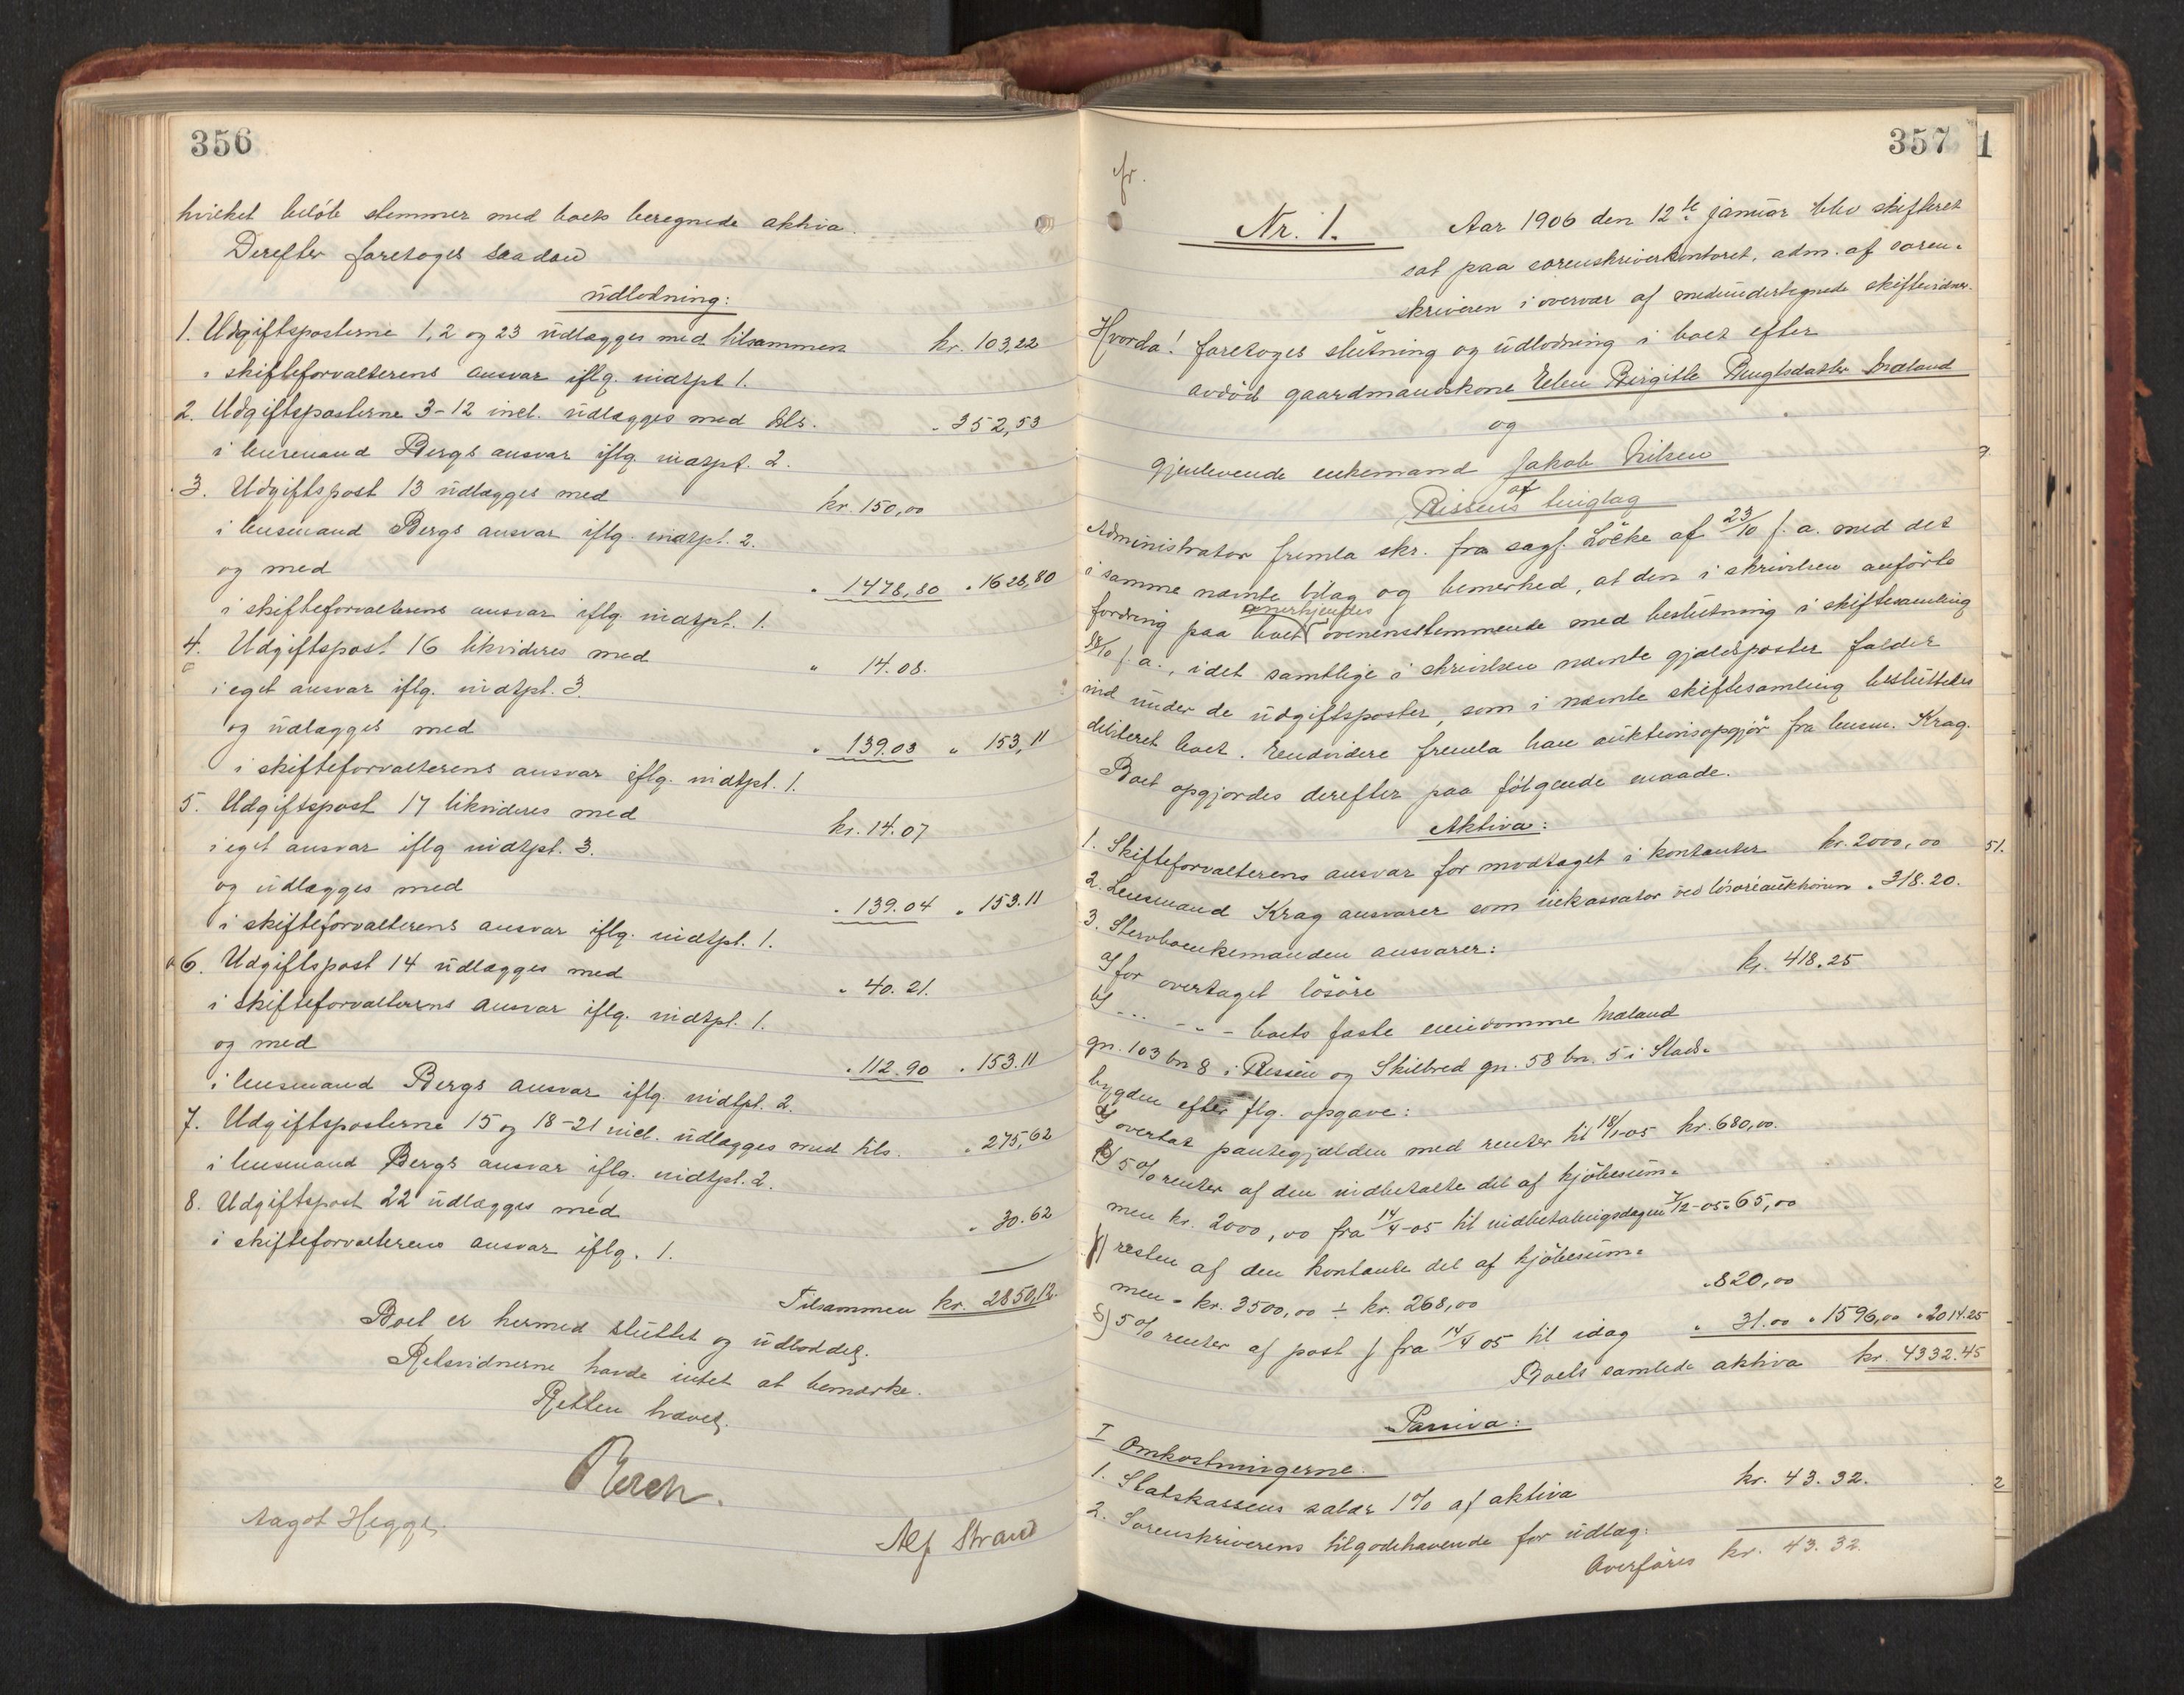 356
hvilket beløb stemmer med boets beregnede aktiva.
Derefter foretoges saadan
udlodning:
1. Udgiftsposterne 1, 2 og 23 udlægges med tilsammen kr. 103,22
i skifteforvalterens ansvar iflg. indtpt 1.
2. Udgiftsposterne 3-12 incl. udlægges med tils. " 352,53
i lensmand Bergs ansvar iflg. indtpt. 2.
3. Udgiftspost 13 udlægges med kr. 150,00
i lensmand Bergs ansvar iflg. indtpt. 2.
og med " 1478,80 " 1628,80
i skifteforvalterens ansvar iflg. indtpt. 1.
4. Udgiftspost 16 likvideres med " 14.08.
i eget ansvar iflg. indtpt. 3.
og udlægges med " 139.03 " 153,11
i skifteforvalterens ansvar iflg. indtpt. 1.
5. Udgiftspost 17 likvideres med kr. 14.07
i eget ansvar iflg indtpt. 3.
og udlægges med " 139.04 " 153.11
i skifteforvalterens ansvar iflg. indtpt. 1.
6. Udgiftspost 14 udlægges med " 40.21.
i skifteforvalterens ansvar iflg. indtpt. 1.
og med " 112.90 " 153.11
i lensmand Bergs ansvar iflg. indtpt. 2.
7. Udgiftsposterne 15 og 18-21 incl. udlægges med tils. " 275,62
i lensmand Bergs ansvar iflg. indtpt. 2.
8. Udgiftspost 22 udlægges med " 30.62
i skifteforvalterens ansvar iflg. 1.
Tilsammen kr. 2850,12.
Boet er hermed sluttet og udloddet.
Retsvidnerne havde intet at bemærke.
Retten hævet.
Aagot Hegge.
Alf Strand
357
1
Nr. 1.
Aar 1906 den 12te januar blev skifteret
sat paa sorenskriverkontoret, adm. af soren-
skriveren i overvær af medundertegnede skiftevidner.
Hvorda! foretoges slutning og udlodning i boet efter
avdød gaardmandskone Elen Birgitte Bengtsdatter Mæland
og
gjenlevende enkemand Jakob Nilsen
af
Rissens tinglag
Administrator fremla skr. fra sagf. Löcke af 23/10 f. a. med det
i samme nævnte bilag og bemerked, at den i skrivelsen anførte
fordring paa boet anerkjendes overensstemmende med beslutning i skiftesamling
18/10 f. a., idet samtlige i skrivelsen nævnte gjældsposter falder
ind under de udgiftsposter, som i nævnte skiftesamling besluttedes
debiteret boet. Endvidere fremla han auktionsopgjør fra lensm. Krag.
Boet opgjordes derefter paa følgende maade.
Aktiva:
1. Skifteforvalterens ansvar for modtaget i kontanter kr. 2000,00
2. Lensmand Krag ansvarer som inkassator ved løsøreauktionen " 318.20.
3. Stervboenkemanden ansvarer:
a) for overtaget løsøre kr. 418.25
b) - " - " - boets faste eiendomme Mæland
gn. 103 bn 8 i Rissen og Skilbred gn. 58 bn. 5 i Stads-
bygden efter flg. opgave:
α) overtat pantegjælden med renter til 18/1-05 kr. 680,00.
β) 5% renter af den indbetalte del af kjøbesum-
men kr. 2000,00 fra 14/4-05 til indbetalingsdagen 7/12-05 " 65,00
γ) resten af den kontante del af kjøbesum-
men = kr. 3500,00 ÷ kr. 268,00 " 820,00
δ) 5% renter af post γ fra 14/4 05 til idag " 31.00 " 1596,00 " 2014.25
Boets samlede aktiva kr. 4332.45
Passiva:
I Omkostningerne.
1. Statskassens salær 1% af aktiva kr. 43.32.
2. Sorenskriverens tilgodehavende for udlæg:
Overføres kr. 43.32.